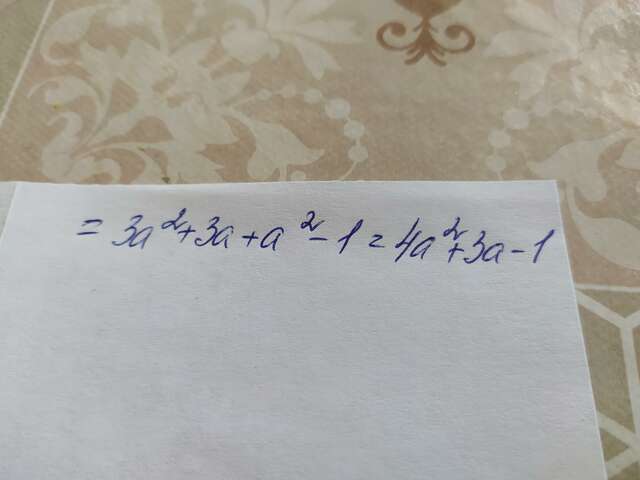 = 3a²+3a+a²-1=4a²+3a-1